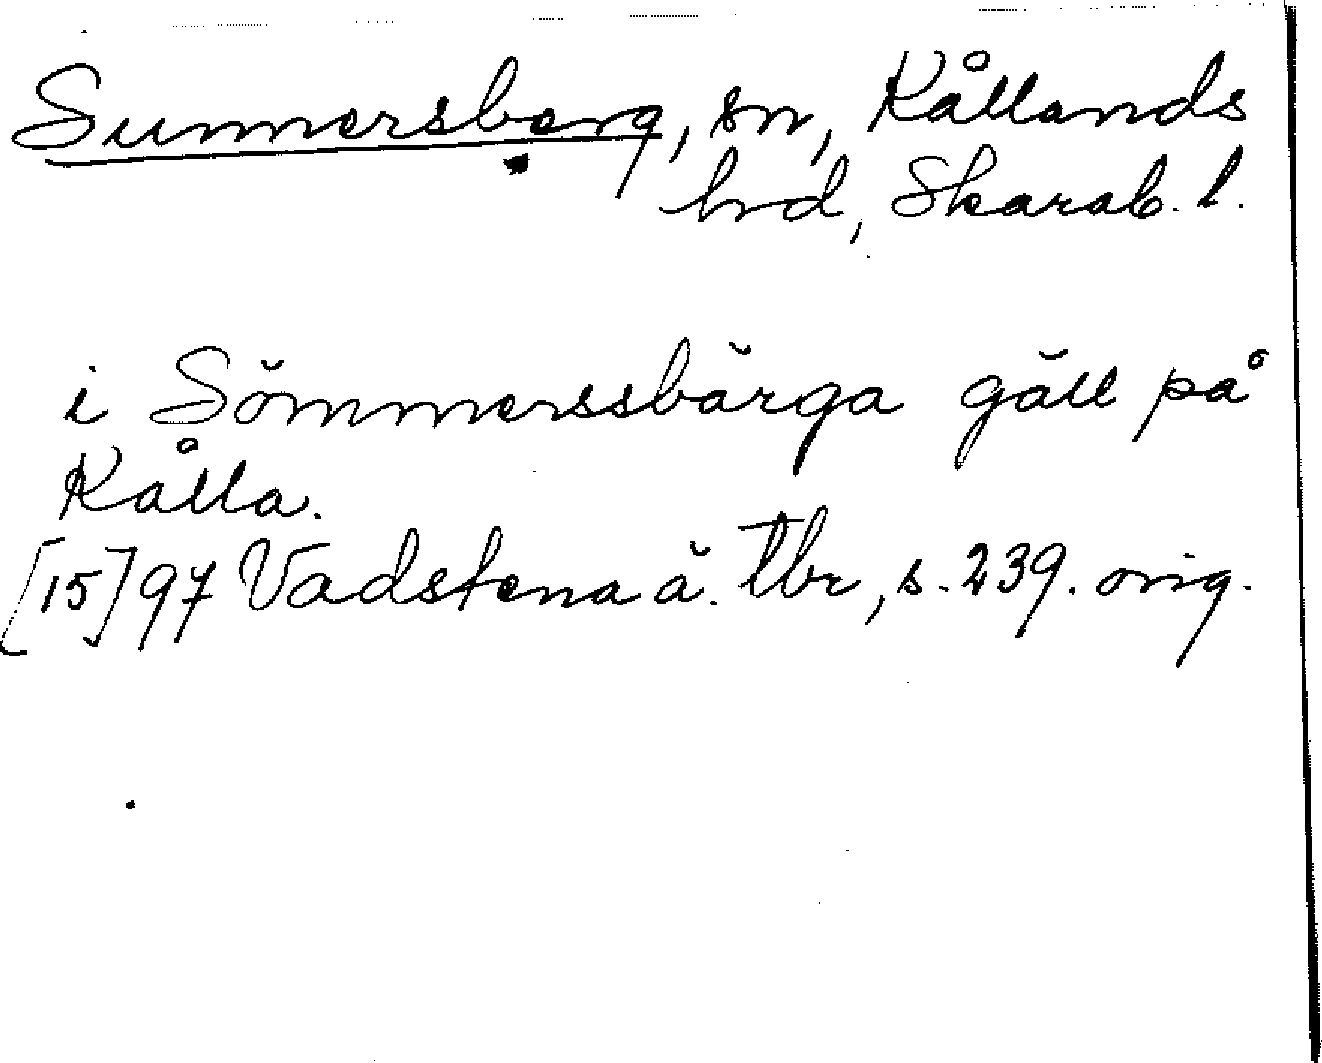 Sunnersberg, sn, Kållands
hrd, Skarab. l.
i Sŏmmerssbărga găll på
Kålla.
[15]97 Vadstena ä. Tbr, s. 239. orig.